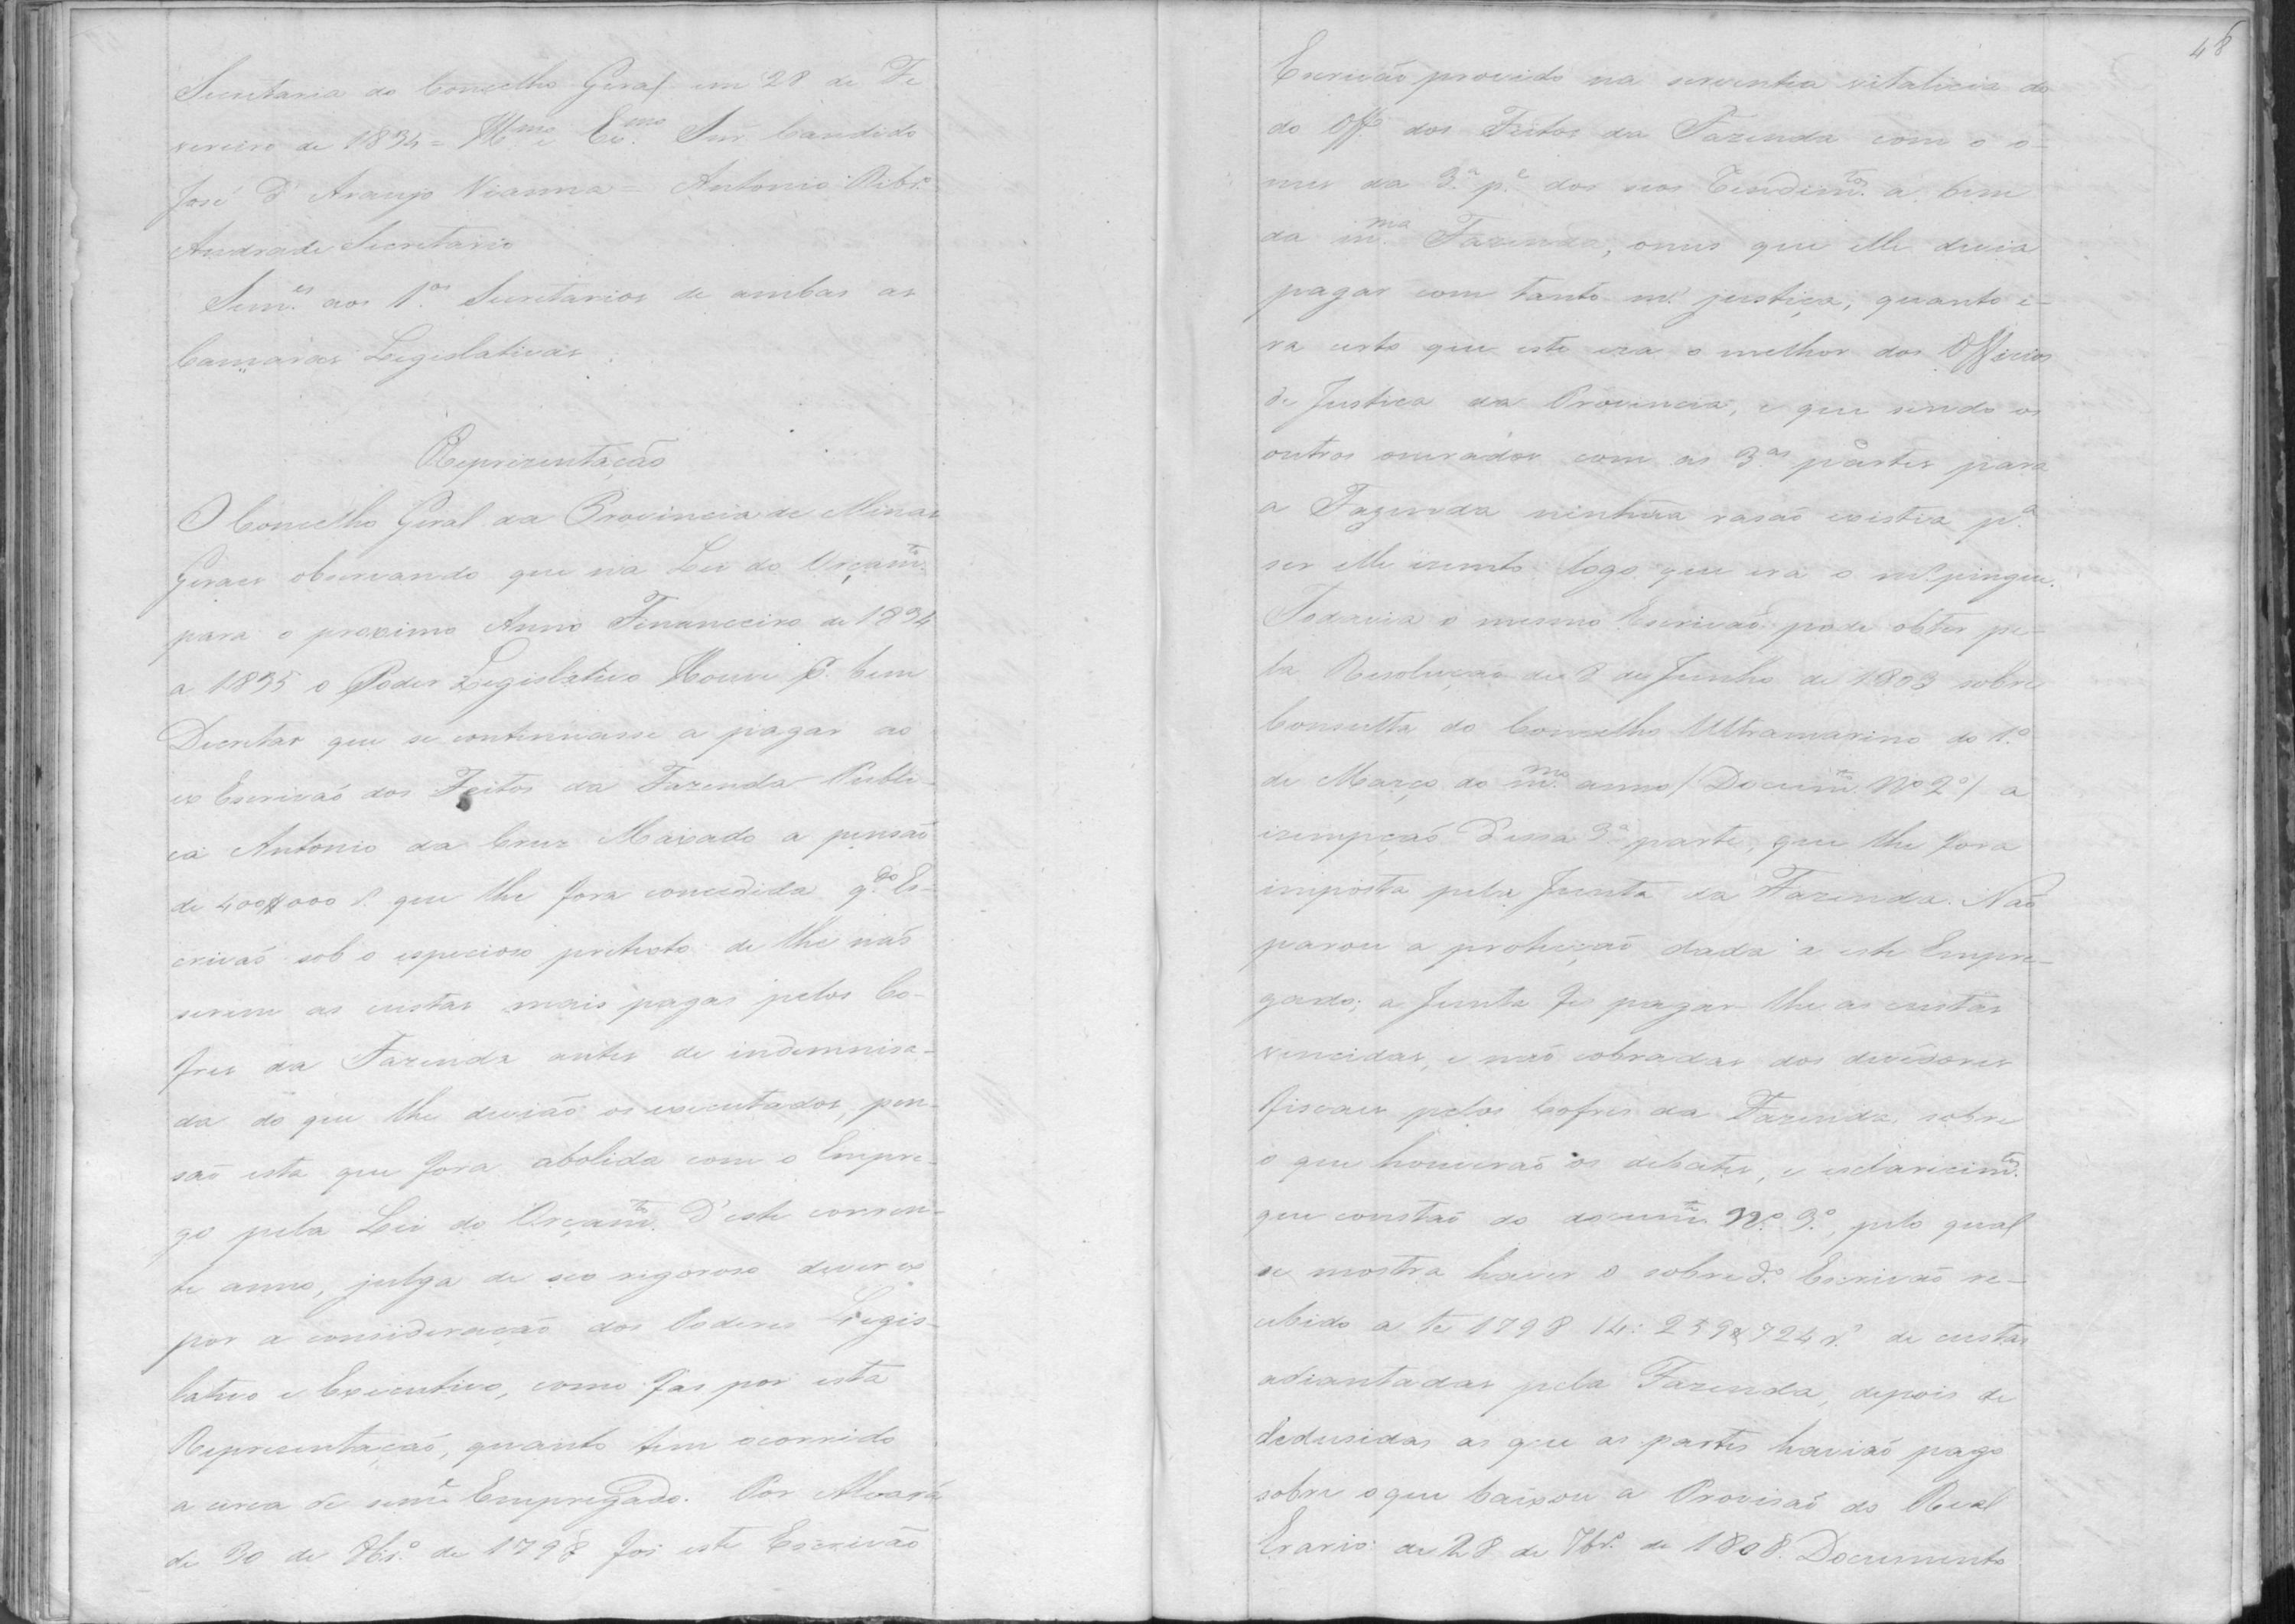 Secretaria do Conselho Geral em 28 de Fe
vereiro de 1834 = Illmo e Exmo. Snr Candido
José d'Araujo Vianna = Antonio Ribro.
Andrade Secretario
Semes. aos 1os. Secretarios de ambas as
Camaras Legislativas.
Reprezentação
O Concelho Geral da Provincia de Minas
Geraes observando que na Lei do Orçamto.
para o proximo Anno Financeiro de 1834
a 1835 o Poder Legislativo Houve p. bem
Decretar que se continuasse a pagar ao
ex Escrivaõ dos Feitos da Fazenda Publi-
ca Antonio da Cruz Maxado a pensaõ
de 400$000 r. que lhe fora concedida qdo. Es-
crivaõ sob o especioso pretexto de lhe naõ
serem as custas mais pagas pelos Co-
fres da Fazenda antes de indemnisa-
da do que lhe deviaõ os executados, pen-
saõ esta que fora abolida com o Empre-
go pela Lei do Orçamto. d'este corren-
te anno, julga de seo rigoroso dever ex
por a consideraçaõ dos Poderes Legis-
lativo e Executivo, como fas por esta
Representaçaõ, quanto tem ocorrido
a cerca de seme. Empregado. Por Alvará
de 30 de 8bro. de 1798 foi este Escrivaõ
48
Escrivaõ provido na serventia vitalicia do
do Offo. dos Feitos da Fazenda com o o-
nus da 3.ª pe. dos seos Rendimtos. a bem
da mma. Fazenda, onus que elle devia
pagar com tanto m. justiça, quanto e-
ra certo que este era o melhor dos Officios
de Justiça da Provincia, e que sendo os
outros onerados com as 3.as partes para
a Fazenda ninhũa rasaõ existia pa.
ser elle izento logo que era o ms. pingue.
Todavia o mesmo Escrivaõ pode obter pe-
la Resoluçaõ de 8 de Junho de 1803 sobre
Consulta do Concelho Ultramarino do 1.º
de Março do mmo. anno (Documto. Nº 2º) a
izempçaõ d'essa 3.ª parte, que lhe fora
imposta pela Junta da Fazenda. Naõ
parou a proteçaõ dada a este Empre-
gado; a Junta fes pagar-lhe as custas
vencidas, e naõ cobradas dos devedores
fiscaes pelos Cofres da Fazenda, sobre
o que houveraõ os debates, e esclarecimtos.
que constaõ do documto Nº. 3º., pelo qual
se mostra haver o sobredo. Escrivaõ re-
cebido a te 1798 14:259$724 r. de custas
adiantadas pela Fazenda, depois de
dedusidas as que as partes haviaõ pago
sobre o que baixou a Provisaõ do Real
Erario de 28 de 7bro. de 1808. Documento